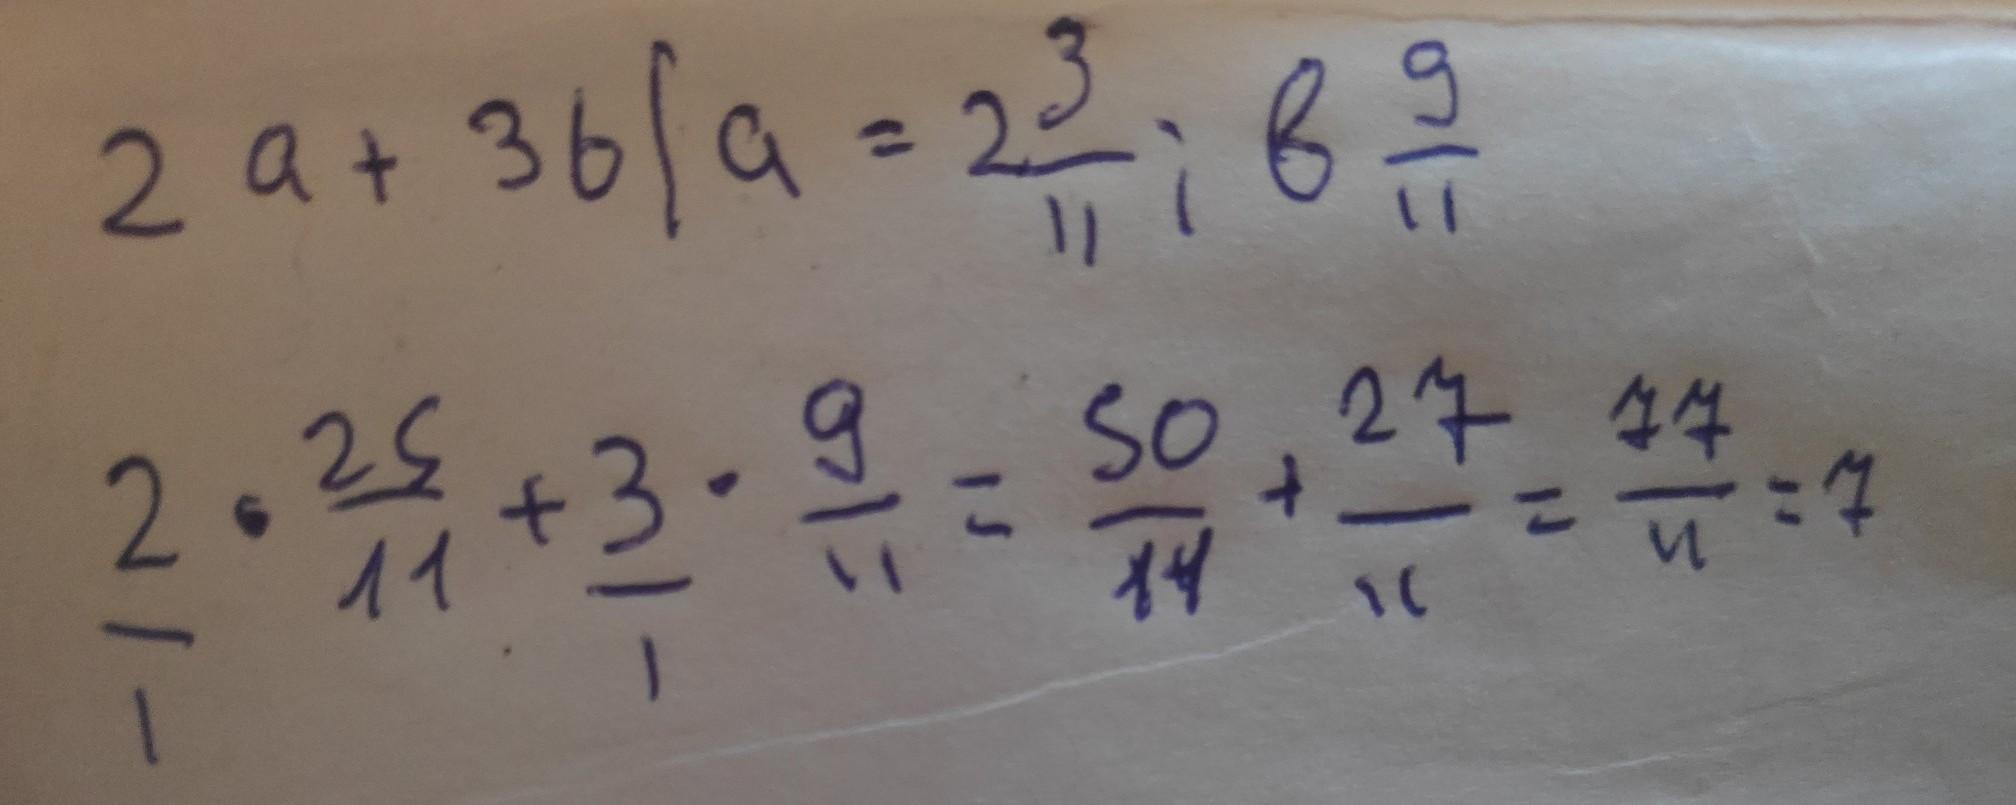 2a + 3b | a = 2 3/11; b 9/11
2/1 · 25/11 + 3/1 · 9/11 = 50/11 + 27/11 = 77/11 = 7